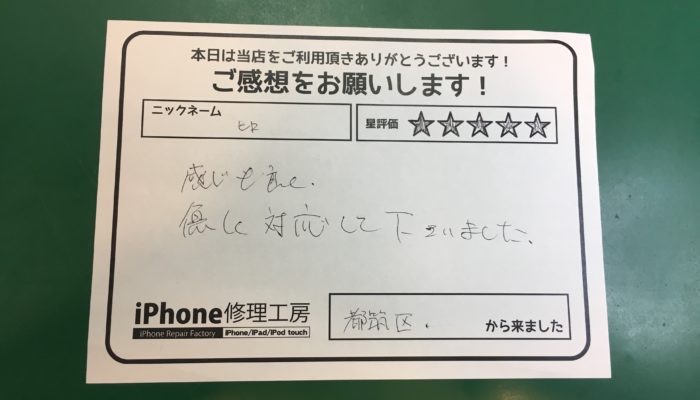 本日は当店をご利用頂きありがとうございます!
ご感想をお願いします!
ニックネーム
星評価 ★★★★★
感じも良く、
優しく対応して下さいました。
iPhone修理工房
iPhone Repair Factory iPhone/iPad/iPod touch
都筑区. から来ました